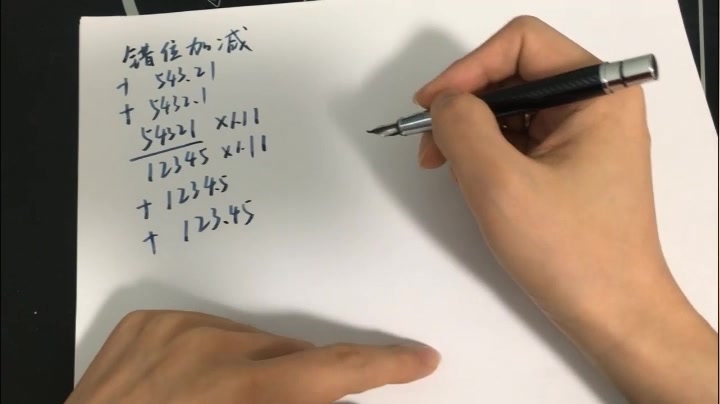 错位加减
+ 543.21
+ 5432.1
54321 ×1.11
12345 ×1.11
+ 1234.5
+ 123.45